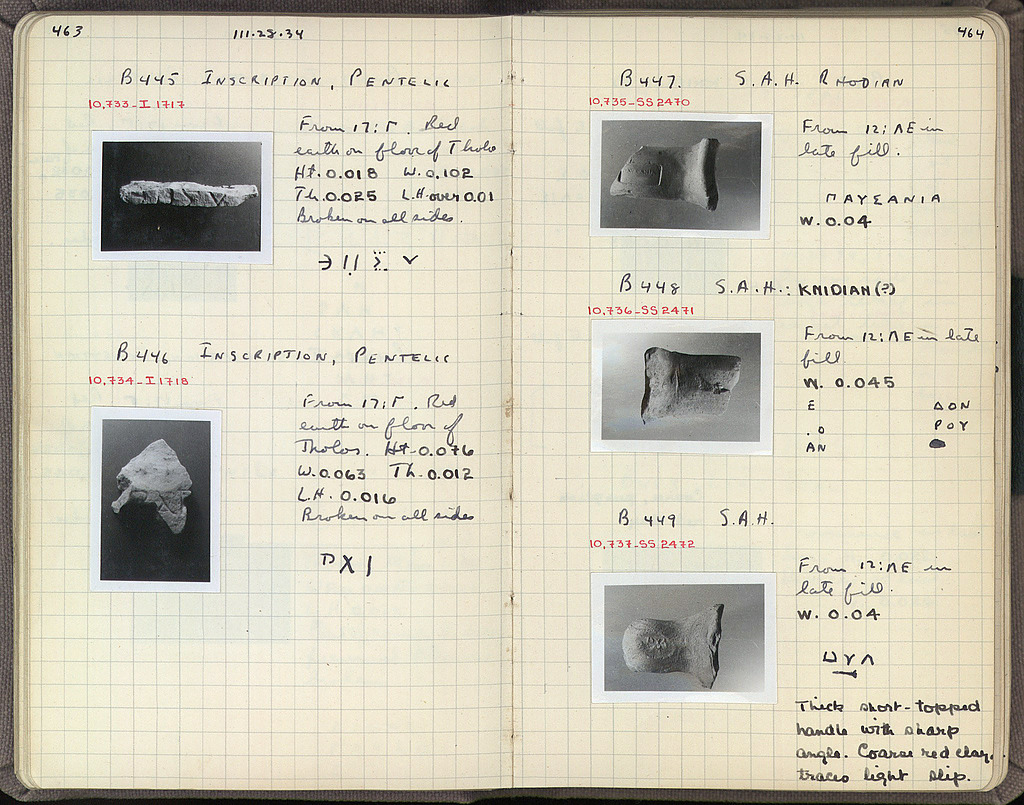 463
III.28.34
B 445 INSCRIPTION, PENTELIC
10,733-I 1717
From 17:Γ. Red
earth on floor of Tholo
Ht. 0.018 W. 0.102
Th. 0.025 L.H. over 0.01
Broken on all sides.
B 446 INSCRIPTION, PENTELIC
10,734-I 1718
From 17:Γ. Red
earth on floor of
Tholos. Ht. 0.076
W. 0.063 Th. 0.012
L.H. 0.016
Broken on all sides
464
B 447. S.A.H. RHODIAN
10,735-SS 2470
From 12:ΛΕ in
late fill.
ΠΑΥΣΑΝΙΑ
W. 0.04
B 448 S.A.H.: KNIDIAN(?)
10,736-SS 2471
From 12:ΛΕ in late
fill
W. 0.045
Ε ΔΟΝ
.Ο ΡΟΥ
ΑΝ
B 449 S.A.H.
10,737-SS 2472
From 12:ΛΕ in
late fill.
W. 0.04
Thick short-topped
handle with sharp
angle. Coarse red clay,
traces light slip.